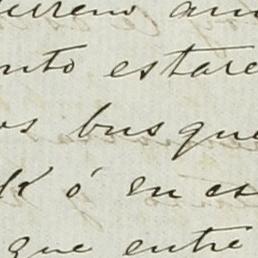 terreno am
nto estare
os busque
k ó en es
que entre